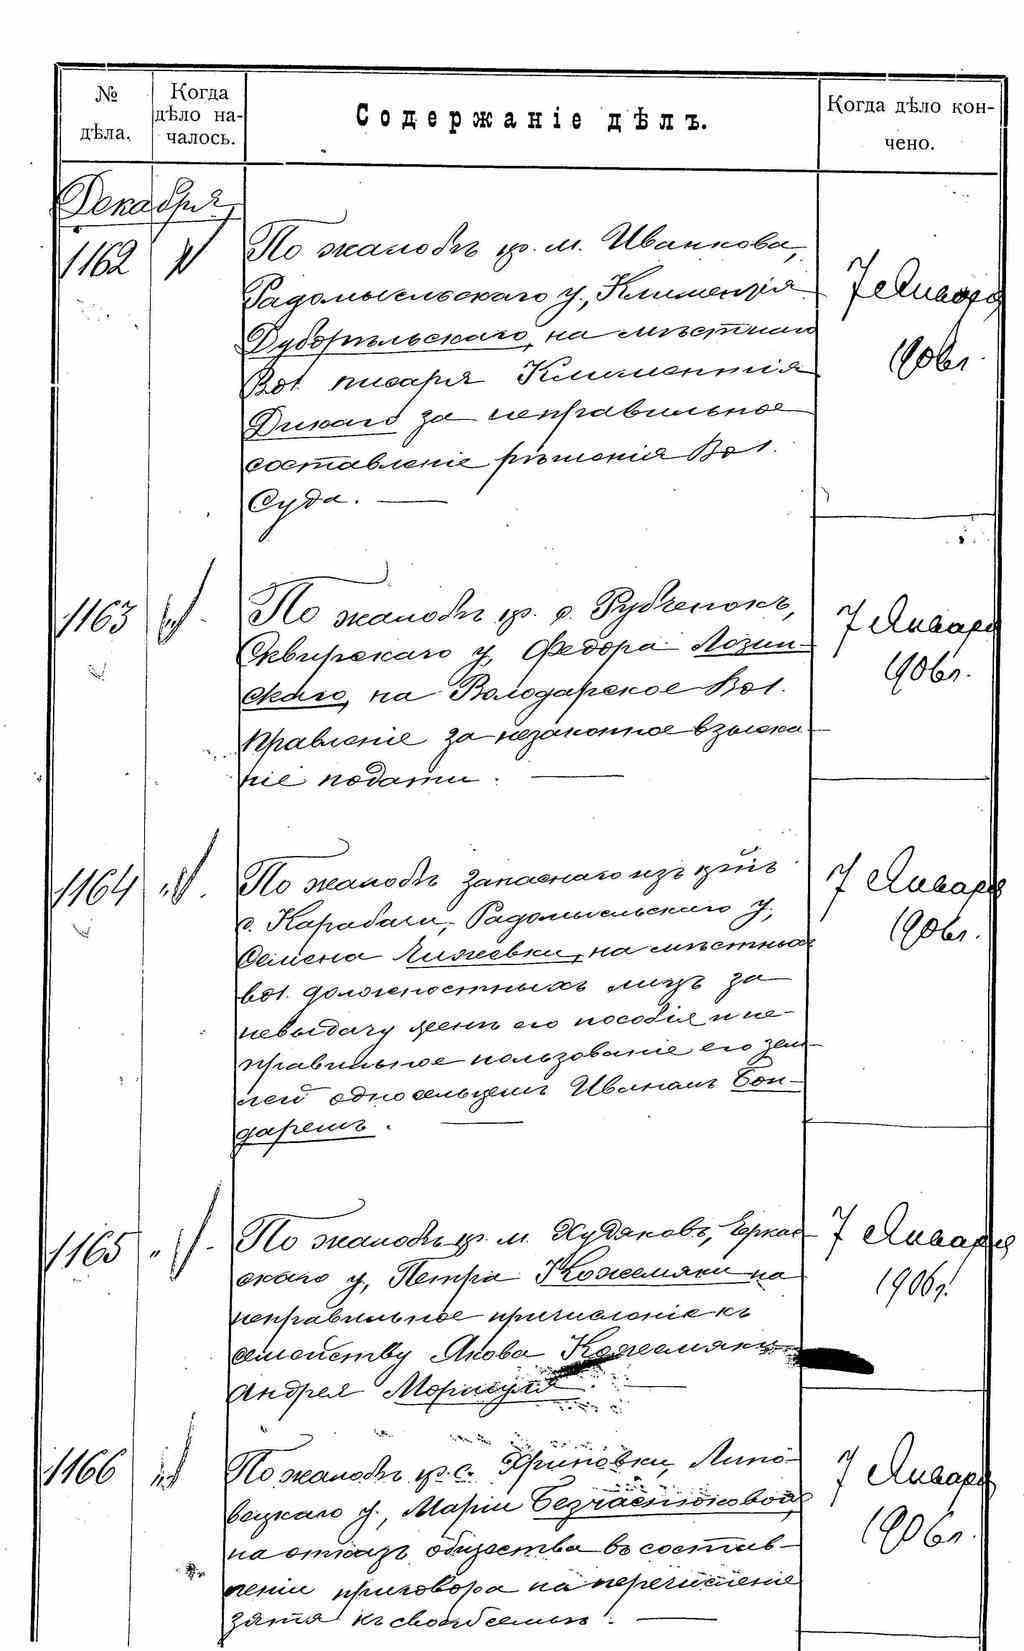 №
дѣла.
Когда
дѣло на-
чалось.
Содержаніе дѣлъ.
Когда дѣло кон-
чено.
Декабря
1162
По жалобѣ кр. м. Иванкова,
Радомысльскаго у., Климентія
на мѣстнаго
Вол. писаря Климентія
Дикаго за неправильное
составленіе рѣшенія Вол.
Суда. —
7 Января
1906 г.
1163
По жалобѣ кр. с. Рубченокъ,
Сквирскаго у, Федора Лозин-
скаго, на Володарское Вол.
Правленіе за незаконное взыска-
ніе подати. —
7 Января
1906 г.
1164
По жалобѣ запаснаго изъ кр-нъ
с. Карабачи, Радомысльскаго у,
Семена на мѣстныхъ
вол. должностныхъ лицъ за
невыдачу женѣ его пособія и не-
правильное пользованіе его зем-
лей односельцемъ Иваномъ Бон-
даремъ. —
7 Января
1906 г.
1165
По жалобѣ кр. м. Худяковъ, Черкас-
скаго у, Петра Кожемяки на
неправильное причисленіе къ
семейству Якова Кожемяки
Андрея —
7 Января
1906 г.
1166
По жалобѣ кр. с. Липо-
вецкаго у., Маріи Безчастюковой,
на отказъ общества въ состав-
леніи приговора на перечисленіе
зятя къ своей семьѣ. —
7 Января
1906 г.